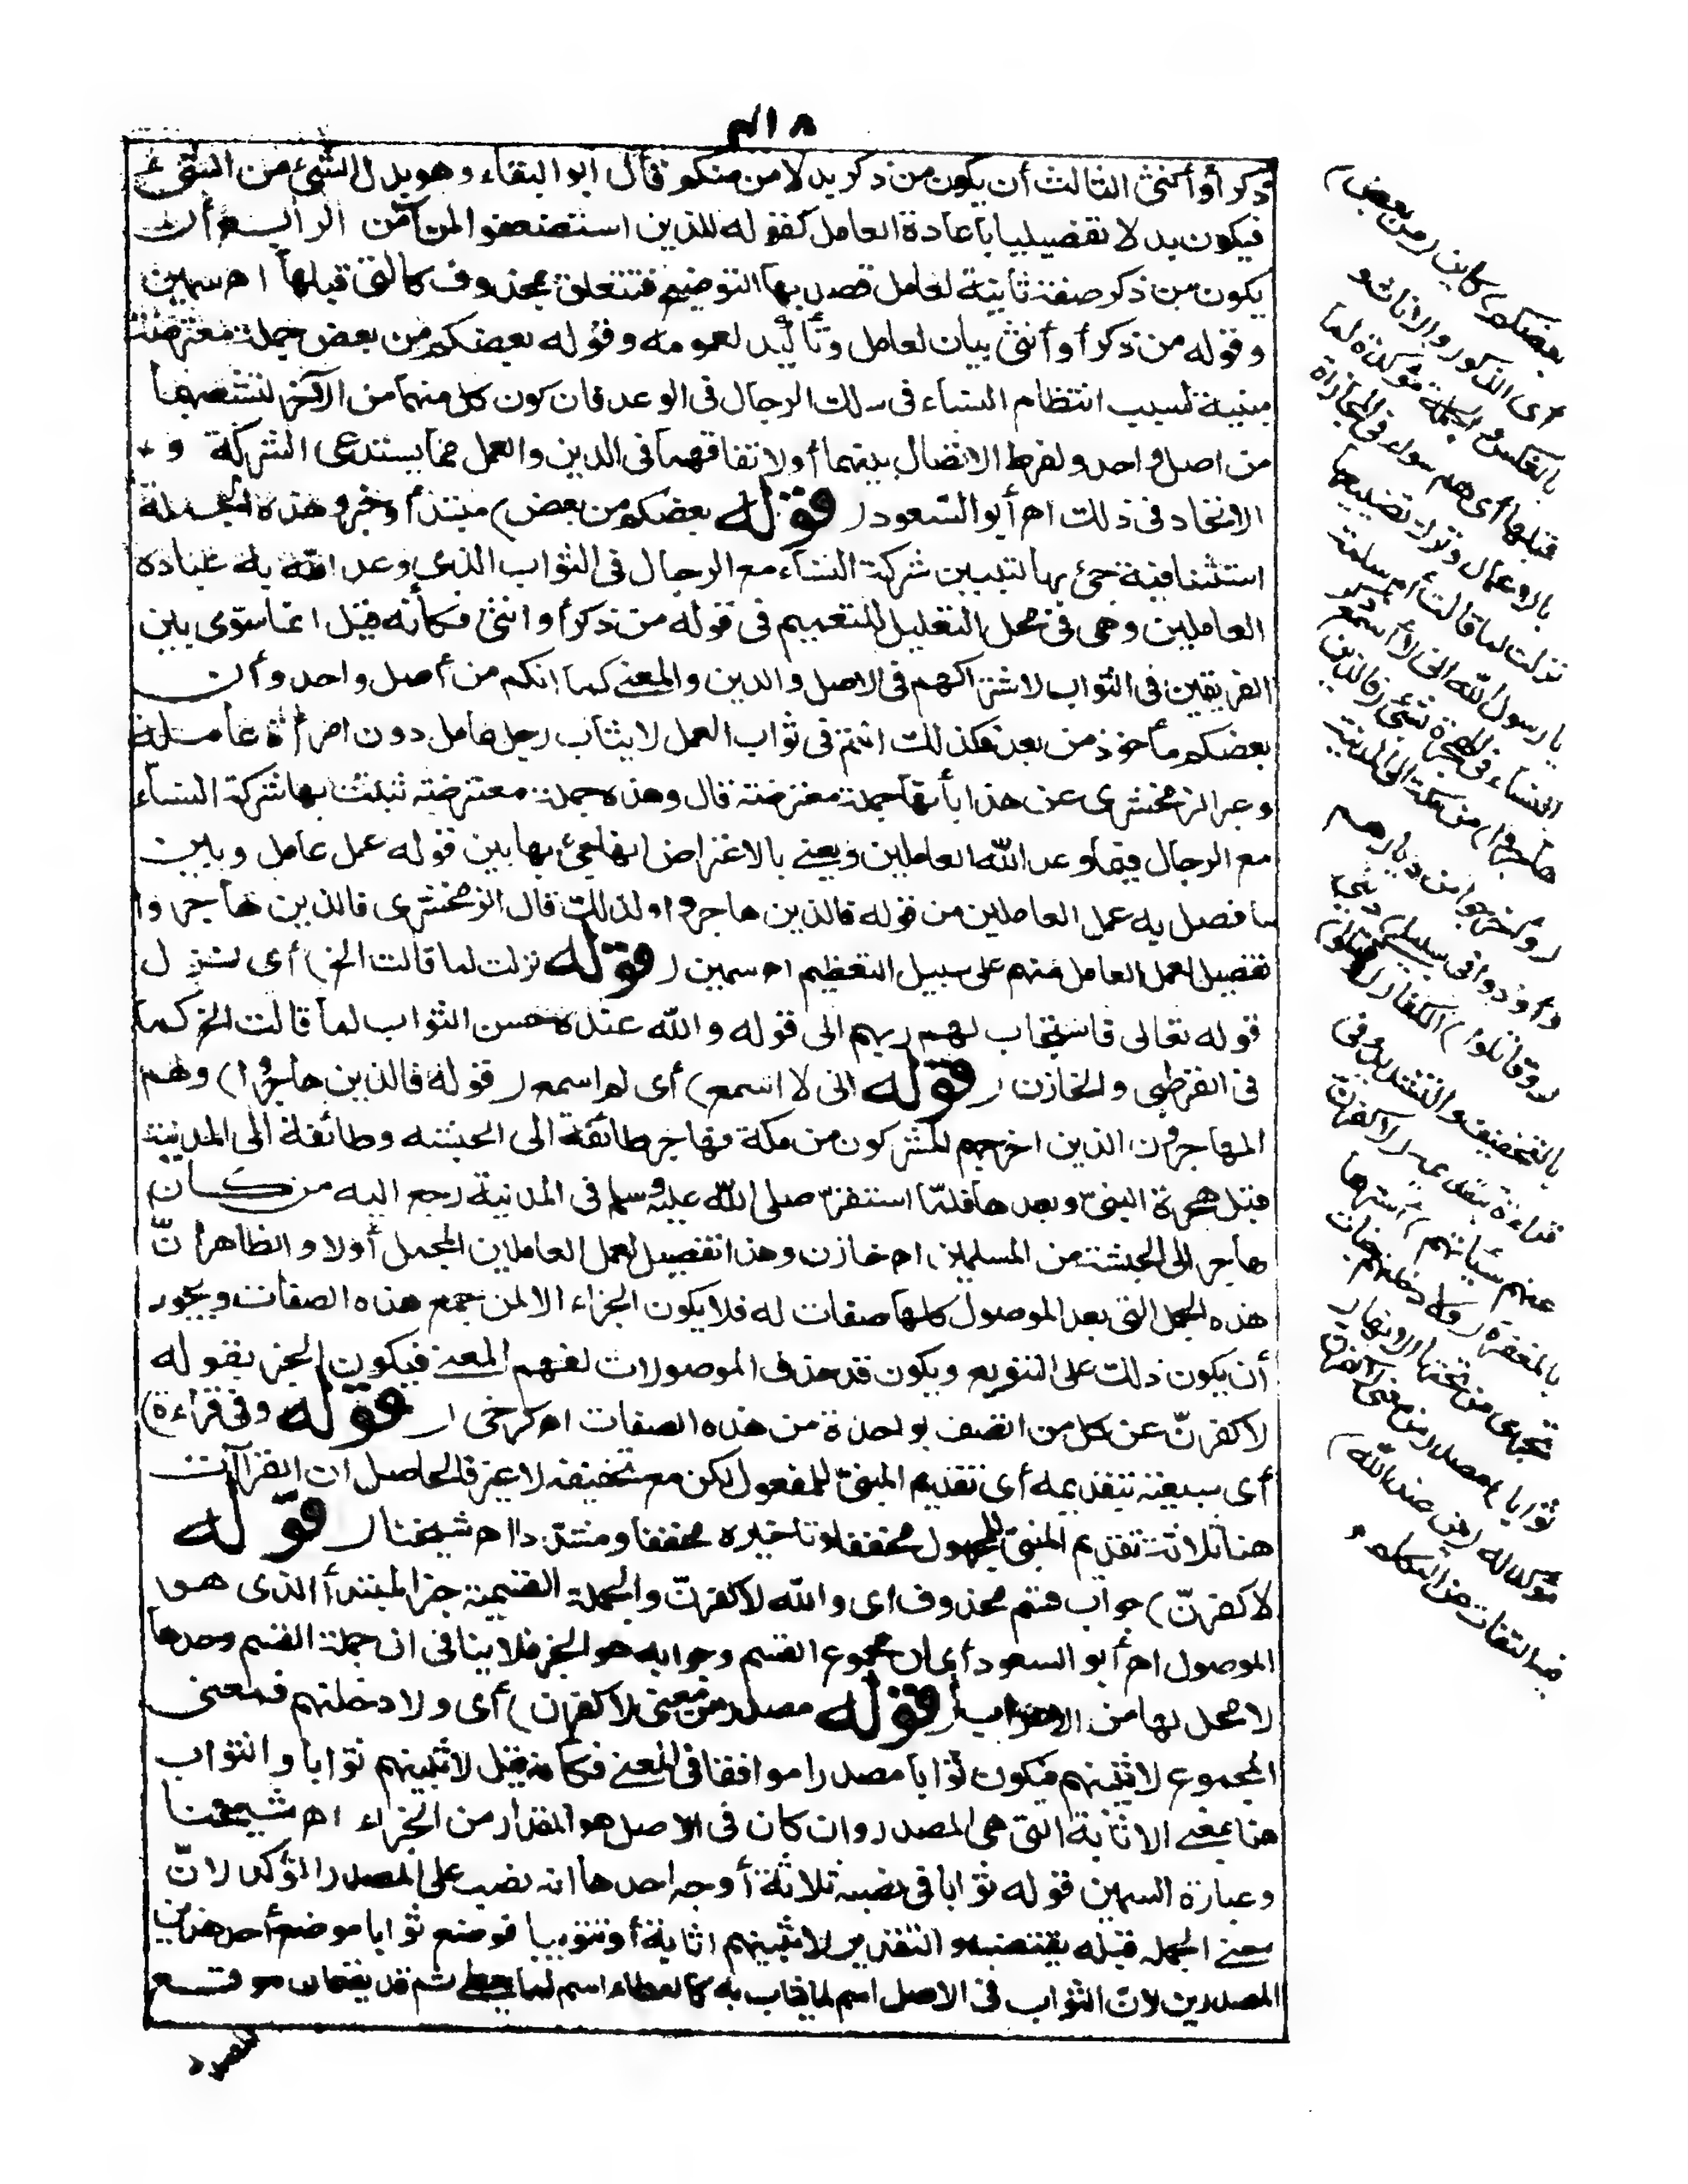 ذكر أو أنثى الثالث أن يكون من ذكر بدلا من منكم قال ابو البقاء وهو بدل الشئ من الشئ
فيكون بدلا تفصيليا باعادة العامل كقوله للذين استضعفوا لمن آمن الرابع أن
يكون من ذكر صفة ثانية لعامل قصد بها التوضيح فتتعلق بمحذوف كالتى قبلها اه سمين
وقوله من ذكر أو أنثى بيان لعامل وتأكيد لعمومه وقوله بعضكم من بعض جملة معترضة
مبينة لسبب انتظام النساء فى سلك الرجال فى الوعد فان كون كل منهما من الآخر لتشعبهما
من اصل واحد ولفرط الاتصال بينهما أو لاتفاقهما فى الدين والعمل مما يستدعى الشركة و
الاتحاد فى ذلك اه أبو السعود ( قوله بعضكم من بعض) مبتدأ وخبر وهذه الجملة
استئنافية جئ بها لتبيين شركة النساء مع الرجال فى الثواب الذى وعد الله به عباده
العاملين وهى فى محل التعليل للتعميم فى قوله من ذكر أو انثى فكأنه قيل انما سوّى بين
الفريقين فى الثواب لاشتراكهم فى الاصل والدين والمعنى كما انكم من أصل واحد وأن
بعضكم مأخوذ من بعد فكذلك انتم فى ثواب العمل لا يثاب رجل عامل دون امرأة عاملة
وعبر الزمخشرى عن هذا بأنها جملة معترضة قال وهذه جملة معترضة تبينت بها شركة النساء
مع الرجال فيما وعد الله العاملين ويعنى بالاعتراض انها جئ بها بين قوله عمل عامل وبين
ما فصل به عمل العاملين من قوله فالذين هاجروا ولذلك قال الزمخشرى فالذين هاجروا
تفصيل لعمل العامل منهم على سبيل التعظيم اه سمين ( قوله نزلت لما قالت الخ) أى نزل
قوله تعالى فاستجاب لهم ربهم الى قوله والله عنده حسن الثواب لما قالت الخ كما
فى القرطبى والخازن ( قوله انى لا اسمع) أى لم اسمع ( قوله فالذين هاجروا) وهم
المهاجرون الذين اخرجهم المشركون من مكة فهاجر طائفة الى الحبشة وطائفة الى المدينة
قبل هجرة النبىّ وبعدها فلمّا استقرّ صلى الله عليه وسلم فى المدينة رجع اليه من كان
هاجر الى الحبشة من المسلمين اه خازن وهذا تفصيل لعمل العاملين المجمل أولا والظاهر انّ
هذه الجمل التى بعد الموصول كلها صفات له فلا يكون الجزاء الا لمن جمع هذه الصفات ويجوز
أن يكون ذلك على التنويع ويكون قد حذف الموصولات لفهم المعنى فيكون الخبر بقوله
لاكفرنّ عن كل من اتصف بواحدة من هذه الصفات اه كرخى ( قوله وفى قراءة)
أى سبعية بتقديمه أى تقديم المبنىّ للمفعول لكن مع تخفيفه لا غير فالحاصل ان القراآت
هنا ثلاثة تقديم المبنىّ للمجهول مخففا وتاخيره مخففا ومشددا اه شيخنا ( قوله
لاكفرنّ) جواب قسم محذوف اى والله لاكفرنّ والجملة القسمية خبر المبتدأ الذى هو
الموصول اه أبو السعود أى ان مجموع القسم وجوابه هو الخبر فلا ينافى ان جملة القسم وحدها
لا محل لها من الاعراب ( قوله مصدر من معنى لاكفرن) أى ولادخلنهم فمعنى
المجموع لاثيبنهم فيكون ثوابا مصدرا موافقا فى المعنى فكأنه قيل لاثيبنهم ثوابا والثواب
هنا بمعنى الاثابة التى هى المصدر وان كان فى الاصل هو المقدار من الجزاء اه شيخنا
وعبارة السمين قوله ثوابا فى نصبه ثلاثة أوجه احدها انه نصب على المصدر المؤكد لانّ
معنى الجمله قبله يقتضيه والتقدير لاثيبنهم اثابة أو تثويبا فوضع ثوابا موضع أحد هذين
المصدرين لانّ الثواب فى الاصل اسم لما يثاب به كالعطاء اسم لما يعطى ثم قد يقعان موقع
بعضكم) كاين (من بعض)
أى الذكور والاناث و
بالعكس والجملة مؤكدة لما
قبلها أى هم سواء فى المجازاة
بالاعمال وترك تضييعها
نزلت لما قالت أم سلمة
يا رسول الله انى لا أسمع ذكر
النساء فى الهجرة بشئ (فالذين
هاجروا) من مكة الى المدينة
(وأخرجوا من ديارهم
وأوذوا فى سبيلى) دينى
(وقاتلوا) الكفار (وقتلوا)
بالتخفيف والتشديد وفى
قراءة بتقديمه (لاكفرنّ
عنهم سيآتهم) أسترها
بالمغفرة (ولادخلنهم جنات
تجرى من تحتها الانهار
ثوابا) مصدر من معنى لاكفرن
مؤكد له (من عند الله)
فيه التفات عن التكلم